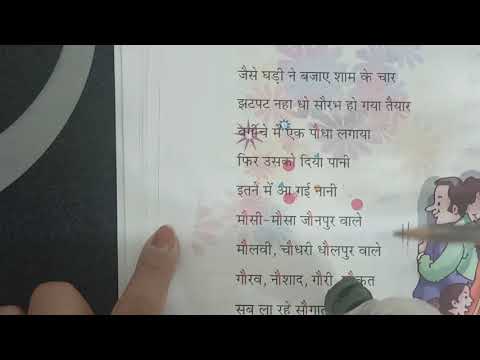 जैसे घड़ी ने बजाए शाम के चार
झटपट नहा धो सौरभ हो गया तैयार
बगीचे में एक पौधा लगाया
फिर उसको दिया पानी
इतने में आ गई नानी
मौसी-मौसा जौनपुर वाले
मौलवी, चौधरी धौलपुर वाले
गौरव, नौशाद, गौरी,
सब ला रहे सौगात